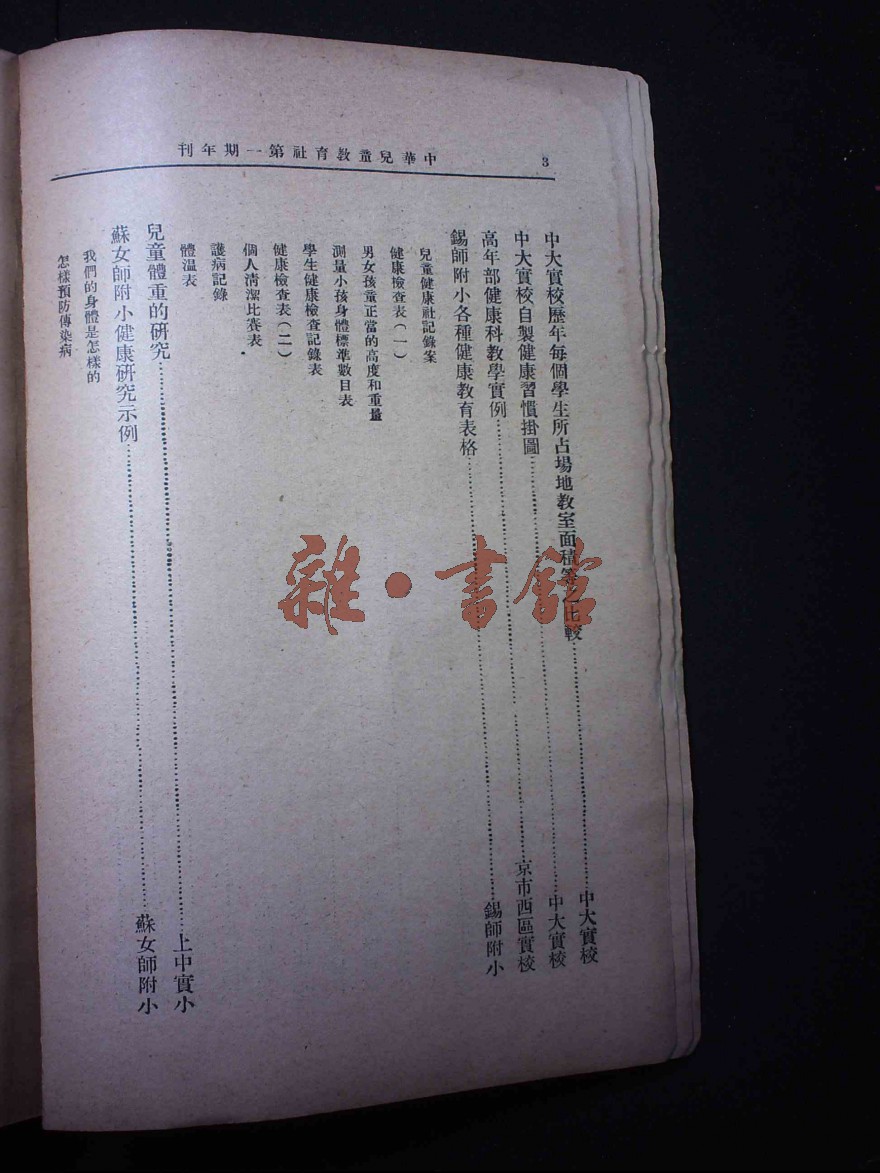 中華兒童教育社第一期年刊
3
中大實校歷年每個學生所占場地教室面積等之比較……中大實校
中大實校自製健康習慣掛圖……中大實校
高年部健康科教學實例……京市西區實校
錫師附小各種健康教育表格……錫師附小
兒童健康社記錄案
健康檢查表(一)
男女孩童正當的高度和重量
測量小孩身體標準數目表
學生健康檢查記錄表
健康檢查表(二)
個人清潔比賽表
護病記錄
體溫表
兒童體重的研究……上中實小
蘇女師附小健康研究示例……蘇女師附小
我們的身體是怎樣的
怎樣預防傳染病
雜·書館